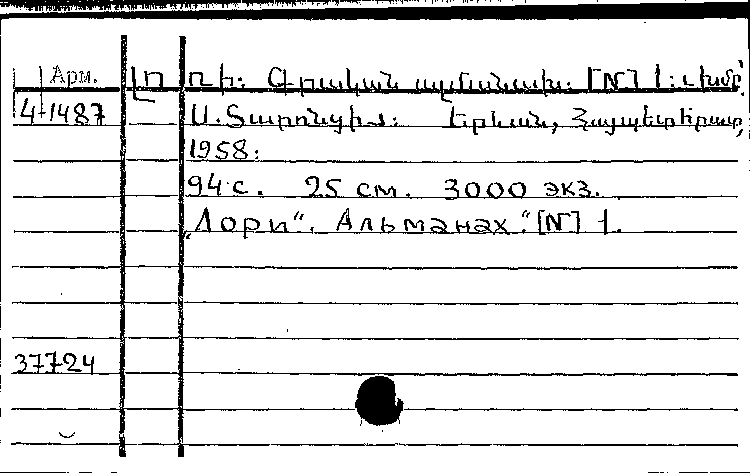 Арм. Լոռի: Գրական ալմանախ: [N] 1: Խմբ՝
4-1487 Ս. Տարոնցի: Երևան, Հայպետհրատ,
1958:
94 с. 25 см. 3000 экз.
„Лори“. Альманах. [N] 1.
37724